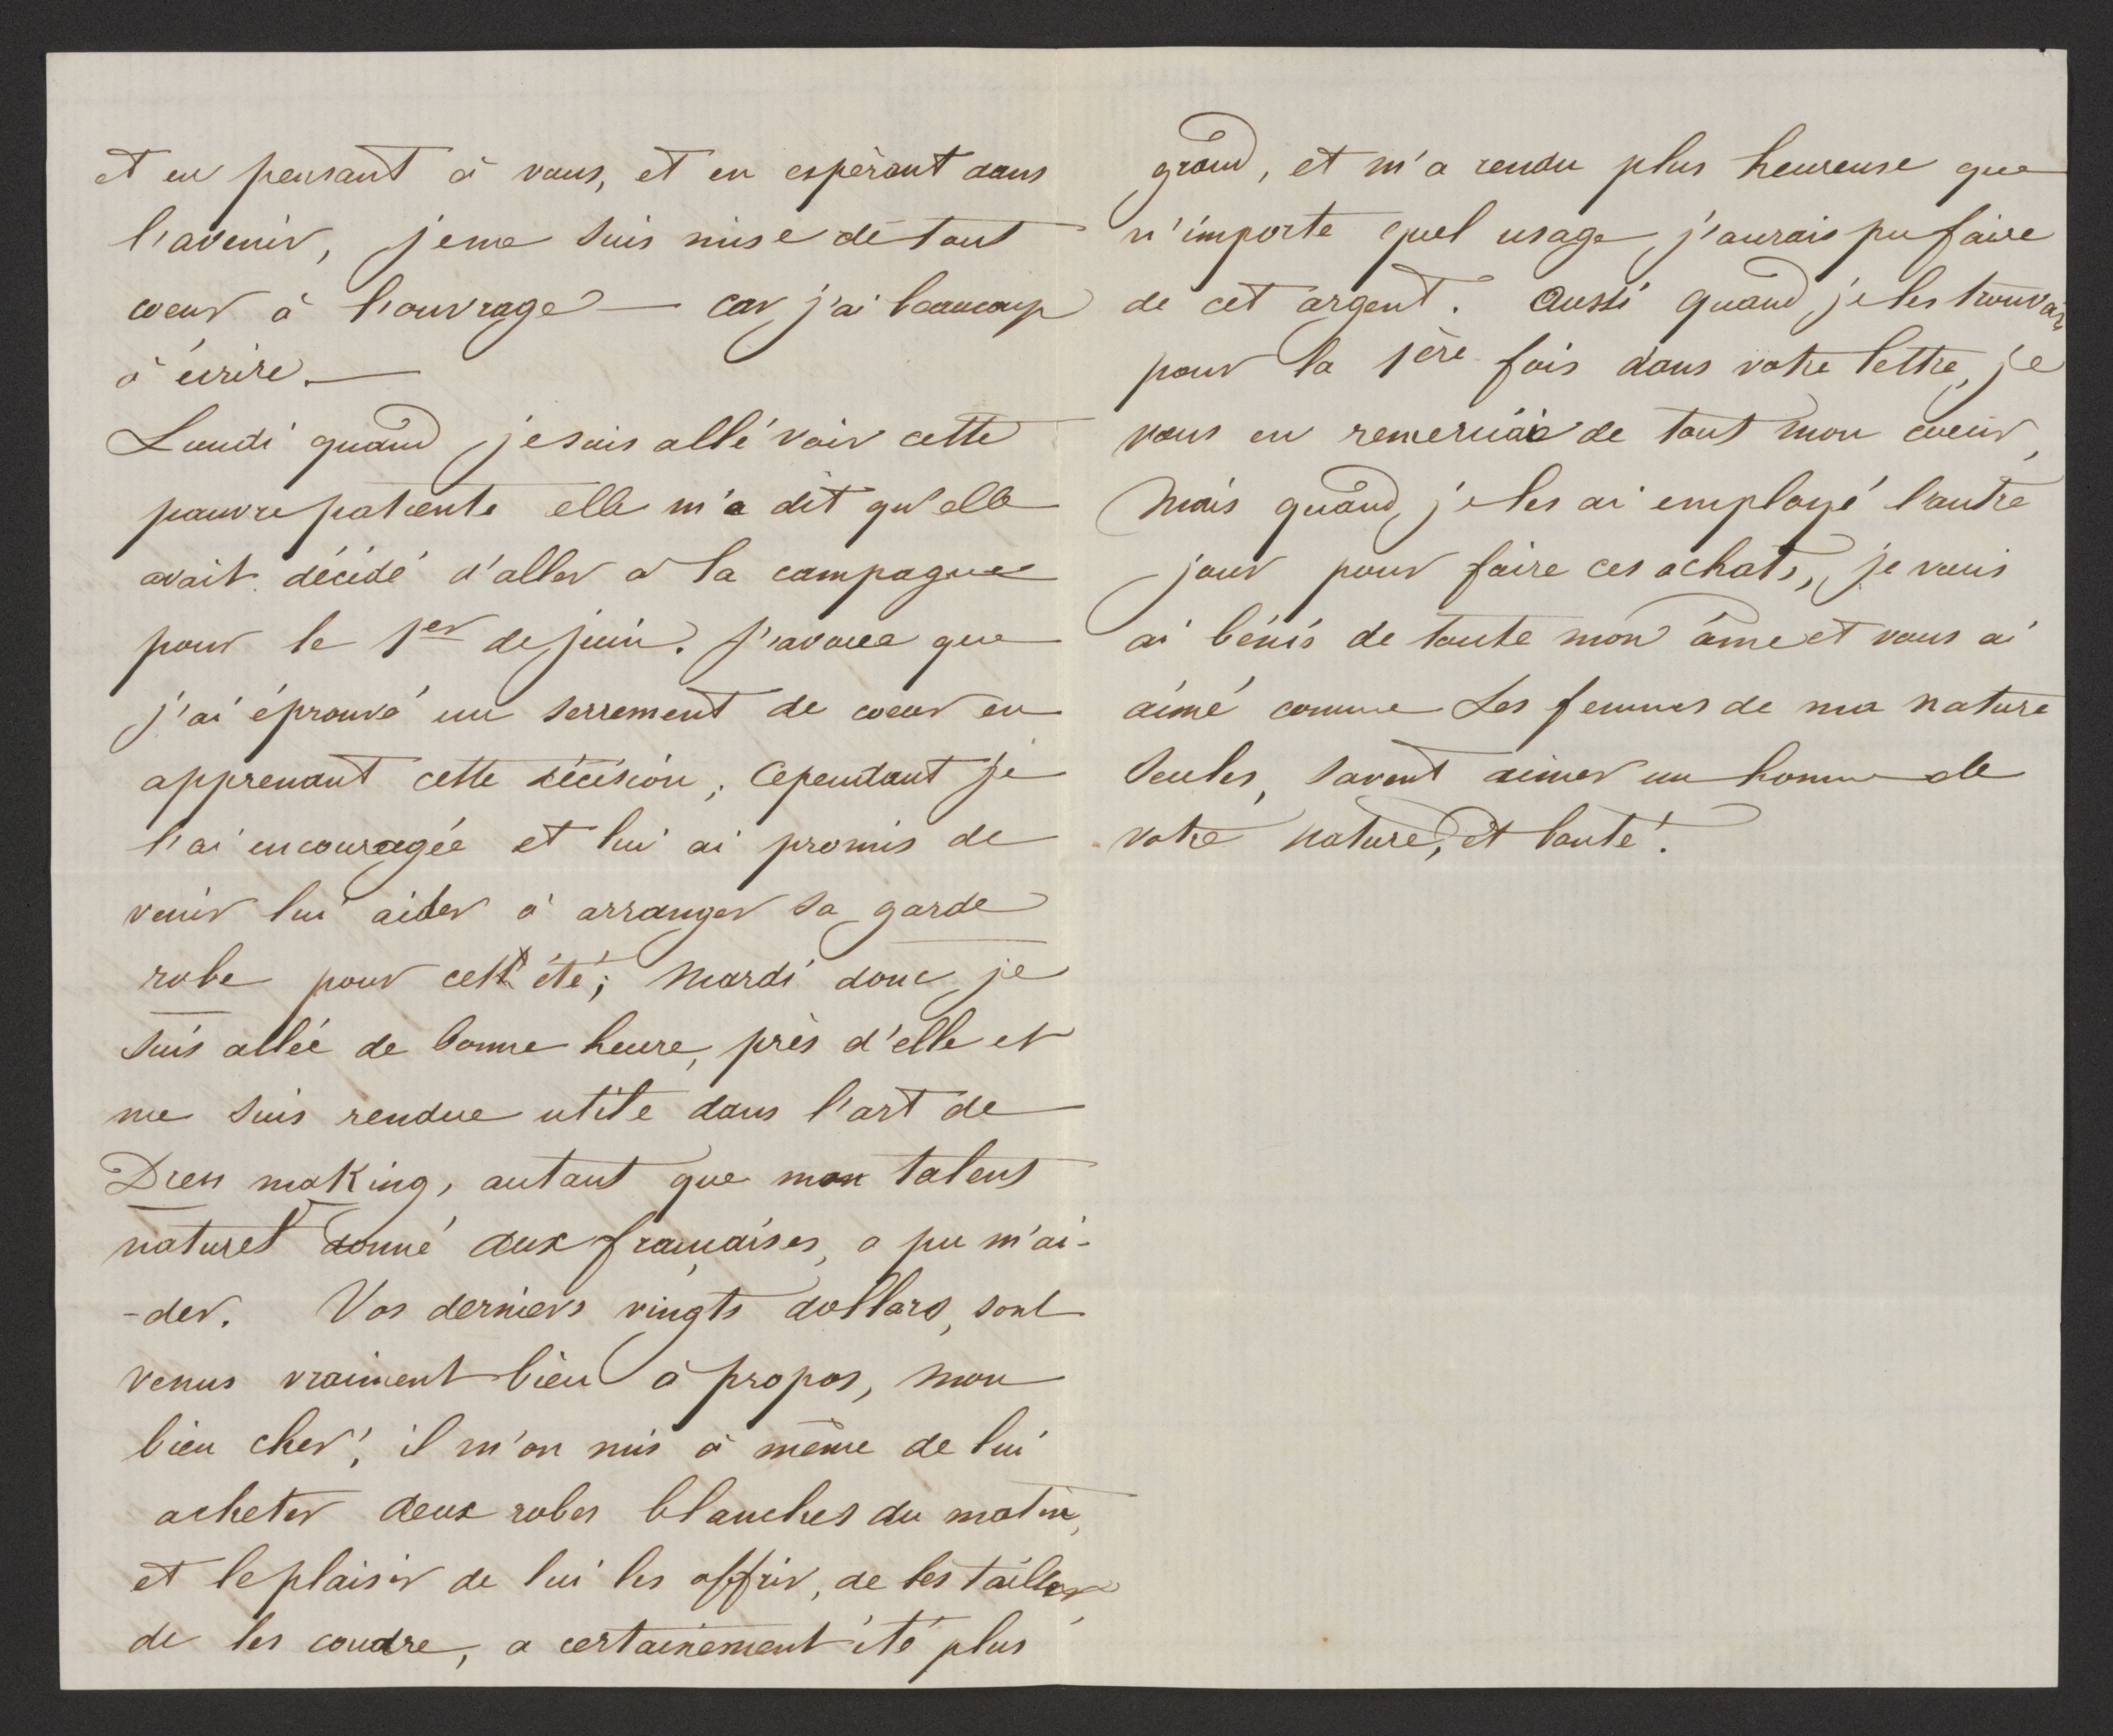 et en pensant à vous, et en espèrant dans
l'avenir, je me suis mise de tout
coeur à l'ouvrage — car j'ai beaucoup
à écrire. —
Lundi quand je suis allé voir cette
pauvre patiente elle m'a dit qu'elle
avait décidé d'aller a la campagne
pour le 1er de juin. J'avoue que
j'ai éprouvé un serrement de coeur en
apprenant cette décision, Cependant je
l'ai encouragée et lui ai promis de
venir lui aider à arranger sa garde
robe pour cet été; Mardi donc je
suis allée de bonne heure, près d'elle et
me suis rendue utile dans l'art de
Dress making, autant que mon talent
naturel donné aux françaises, a pu m'ai-
-der. Vos derniers vingts dollars, sont
venus vraiment bien à propos, mon
bien cher! il m'on mis à même de lui
acheter deux robes blanches du matin,
et le plaisir de lui les offrir, de les tailler,
de les coudre, a certainement été plus
grand, et m'a rendu plus heureuse que
n'importe quel usage j'aurais pu faire
de cet argent. Aussi quand je les trouvai
pour la 1ère fois dans votre lettre, je
vous en remerciai de tout mon coeur,
Mais quand je les ai employé l'autre
jour pour faire ces achats, je vous
ai bénis de toute mon âme et vous ai
aimé comme Les femmes de ma nature
seules, savent aimer un homme de
votre nature, et bonté!